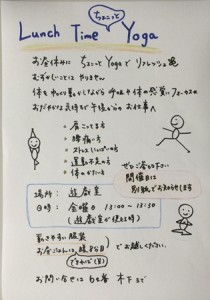 ちょこっと
Lunch Time Yoga
お昼休みに ちょこっと Yogaで リフレッシュ
むずかしいことは やりません
体をゆっくり動かしながら 呼吸や体の感覚にフォーカス
おだやかな気持ちで午後からのお仕事へ
・肩こってる方
・腰痛い方
・ストレスいっぱいの方
・運動不足の方
・体のかたい方
ぜひご参加下さい
開催日は
別紙でお知らせします
場所: 遊戯室
日時: 金曜日 18:00〜18:30
(遊戯室が使える時)
動きやすい服装
お昼ごはんは腹8分目
できれば(笑)
でお越しください。
お問い合せは 木下まで